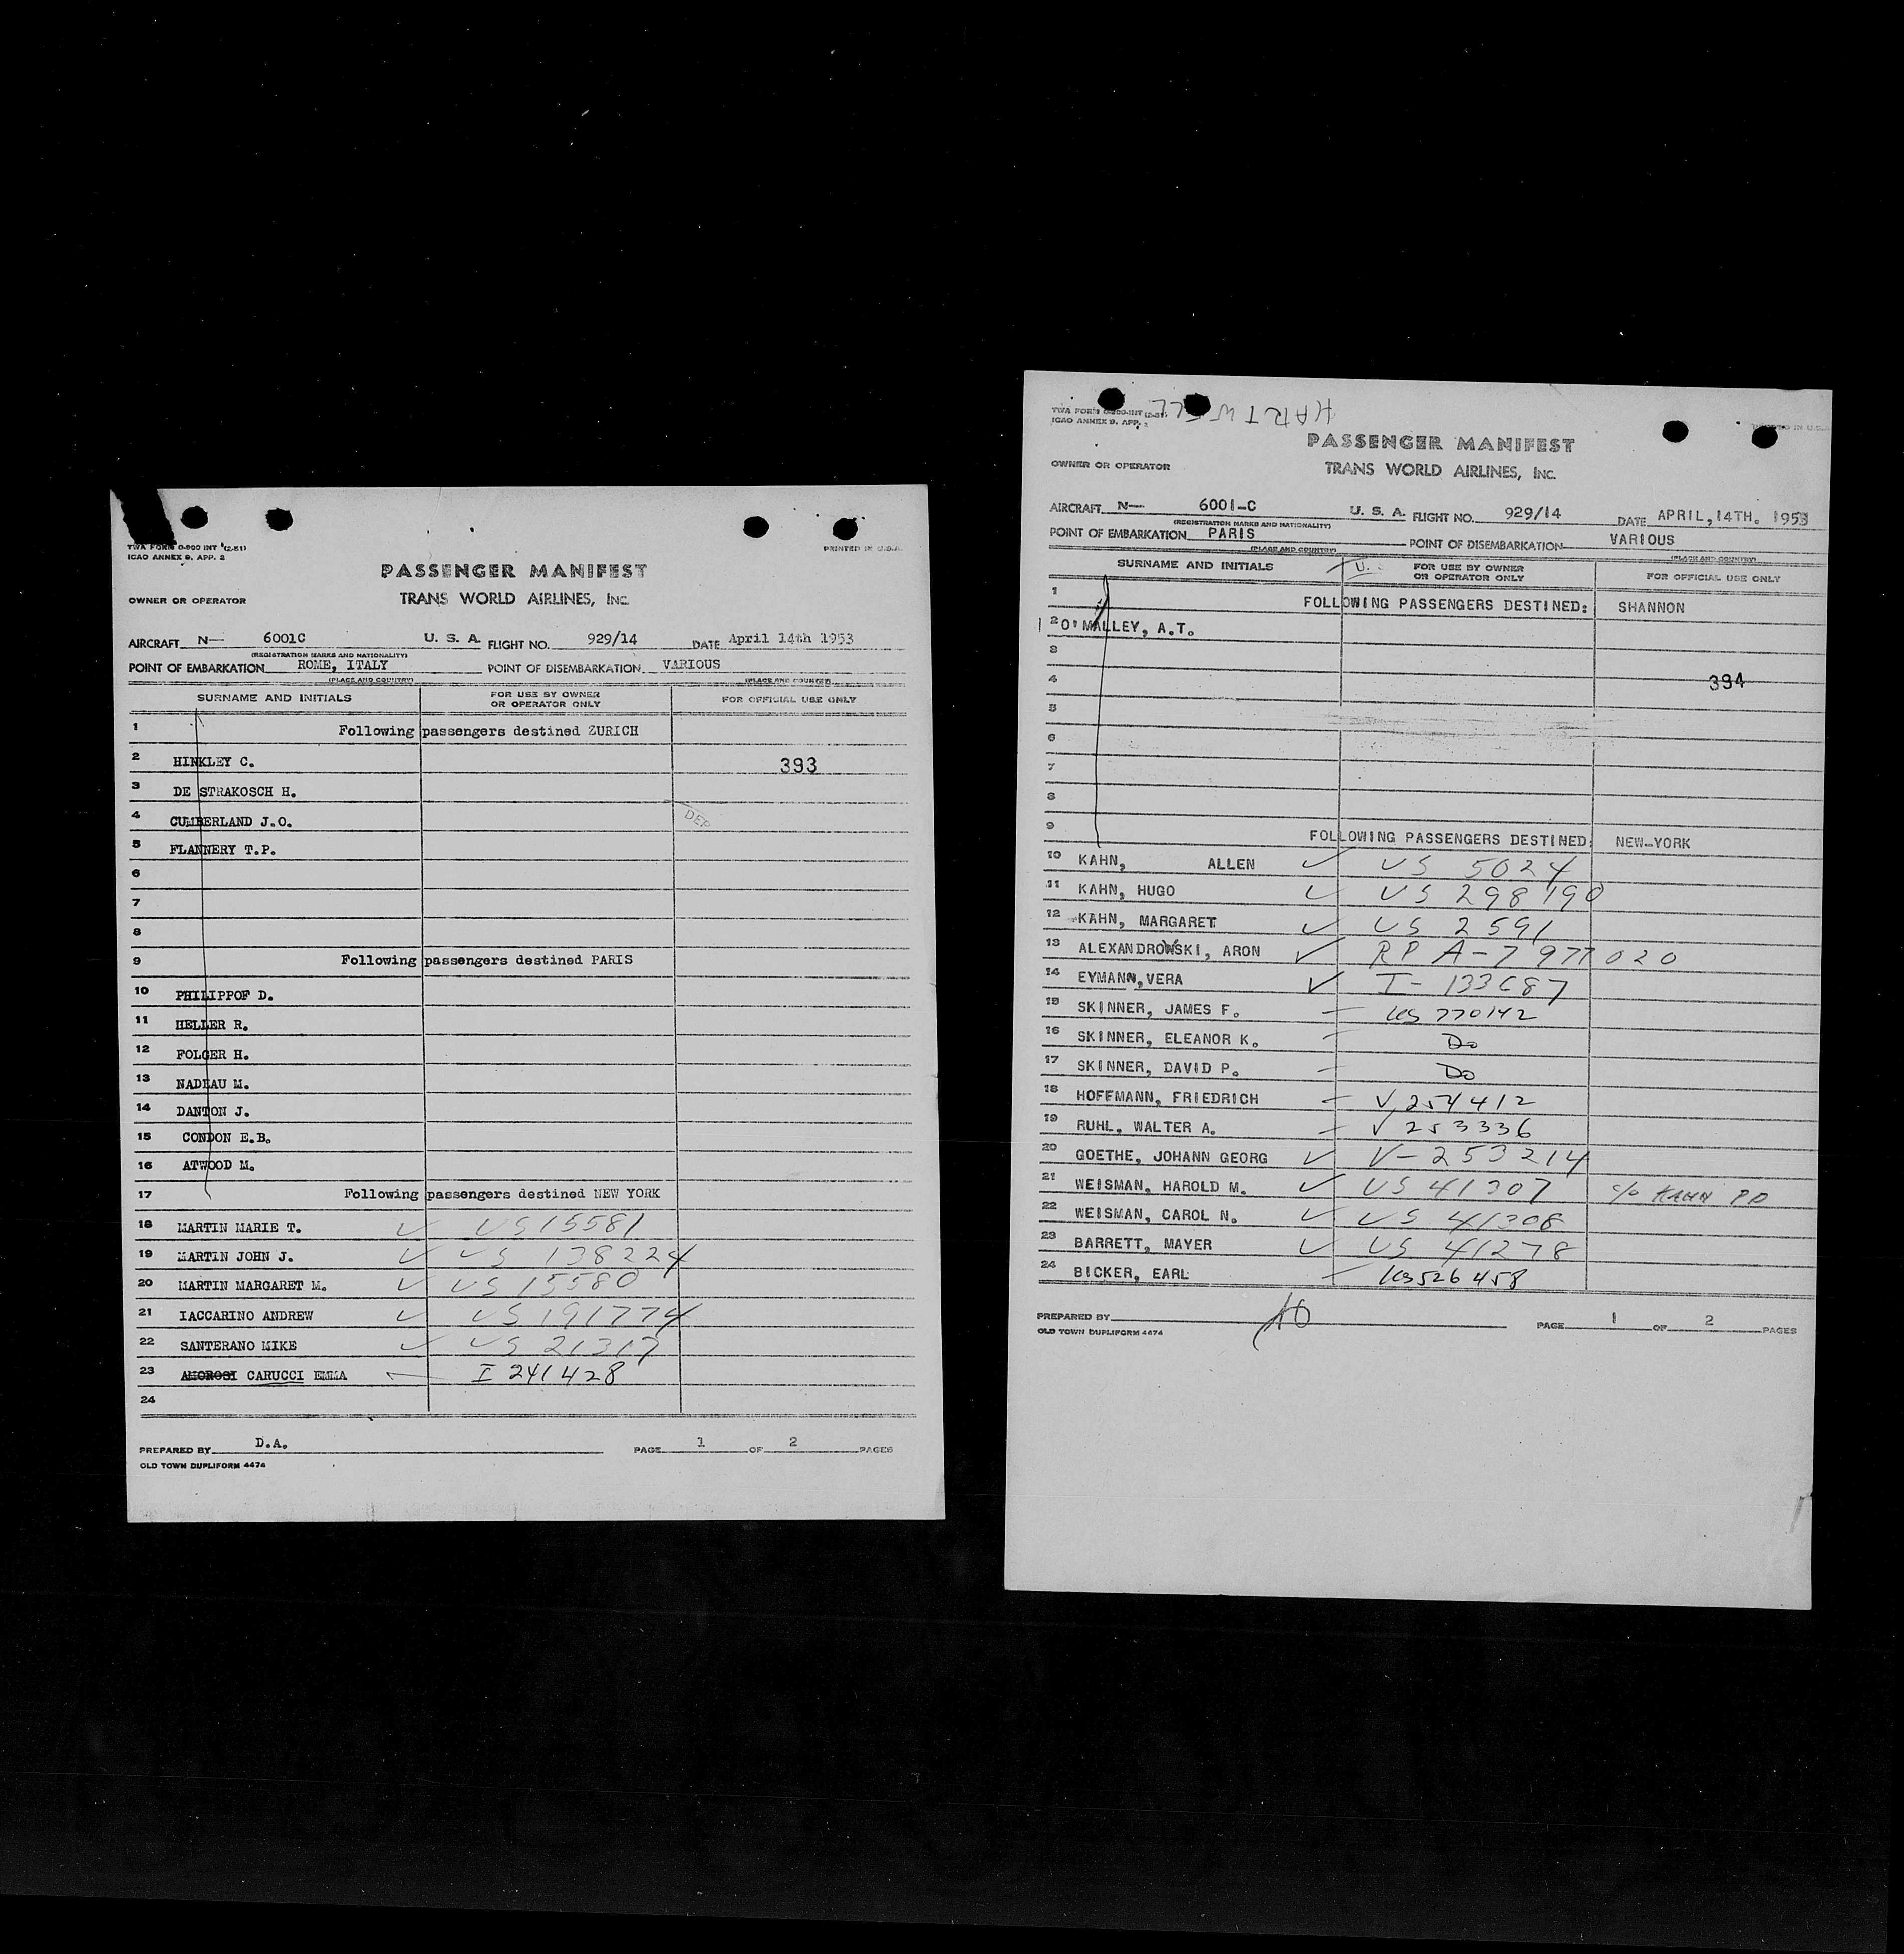 TWA FORM 0-900 INT (2-51)
ICAO ANNEX 9, APP. 2
PRINTED IN U.S.A.
PASSENGER MANIFEST
OWNER OR OPERATOR TRANS WORLD AIRLINES, INC.
AIRCRAFT N— 6001C U. S. A. FLIGHT NO. 929/14 DATE April 14th 1953
(REGISTRATION MARKS AND NATIONALITY)
POINT OF EMBARKATION ROME, ITALY POINT OF DISEMBARKATION VARIOUS
(PLACE AND COUNTRY) (PLACE AND COUNTRY)
SURNAME AND INITIALS FOR USE BY OWNER OR OPERATOR ONLY FOR OFFICIAL USE ONLY
1 Following passengers destined ZURICH
2 HINKLEY C. 393
3 DE STRAKOSCH H.
4 CUMBERLAND J.O. DEP
5 FLANNERY T.P.
6
7
8
9 Following passengers destined PARIS
10 PHILIPPOF D.
11 HELLER R.
12 FOLGER H.
13 NADEAU M.
14 DANTON J.
15 CONDON E.B.
16 ATWOOD M.
17 Following passengers destined NEW YORK
18 MARTIN MARIE T. ✓ US 15581
19 MARTIN JOHN J. ✓ US 138224
20 MARTIN MARGARET M. ✓ US 15580
21 IACCARINO ANDREW ✓ US 191774
22 SANTERANO MIKE ✓ US 21317
23 AMOROSI CARUCCI EMMA I 241428
24
PREPARED BY D.A. PAGE 1 OF 2 PAGES
OLD TOWN DUPLIFORM 4474
HARTWELL
TWA FORM 0-900-INT (2-51)
ICAO ANNEX 9, APP. 2
PRINTED IN U.S.A.
PASSENGER MANIFEST
OWNER OR OPERATOR TRANS WORLD AIRLINES, INC.
AIRCRAFT N— 6001-C U. S. A. FLIGHT NO. 929/14 DATE APRIL,14TH. 1953
(REGISTRATION MARKS AND NATIONALITY)
POINT OF EMBARKATION PARIS POINT OF DISEMBARKATION VARIOUS
(PLACE AND COUNTRY) (PLACE AND COUNTRY)
SURNAME AND INITIALS FOR USE BY OWNER OR OPERATOR ONLY FOR OFFICIAL USE ONLY
1 FOLLOWING PASSENGERS DESTINED: SHANNON
2 O'MALLEY, A.T.
3
4 394
5
6
7
8
9 FOLLOWING PASSENGERS DESTINED: NEW-YORK
10 KAHN, ALLEN ✓ US 5024
11 KAHN, HUGO ✓ US 298190
12 KAHN, MARGARET ✓ US 2591
13 ALEXANDROWSKI, ARON ✓ RP A-7977020
14 EYMANN,VERA ✓ I- 133687
15 SKINNER, JAMES F. — US 770142
16 SKINNER, ELEANOR K. — Do
17 SKINNER, DAVID P. — Do
18 HOFFMANN, FRIEDRICH — V 254412
19 RUHL, WALTER A. — V 253336
20 GOETHE, JOHANN GEORG ✓ V-253214
21 WEISMAN, HAROLD M. ✓ US 41307 c/o KAHN PD
22 WEISMAN, CAROL N. ✓ US 41308
23 BARRETT, MAYER ✓ US 41278
24 BICKER, EARL — US 526458
PREPARED BY PAGE 1 OF 2 PAGES
OLD TOWN DUPLIFORM 4474